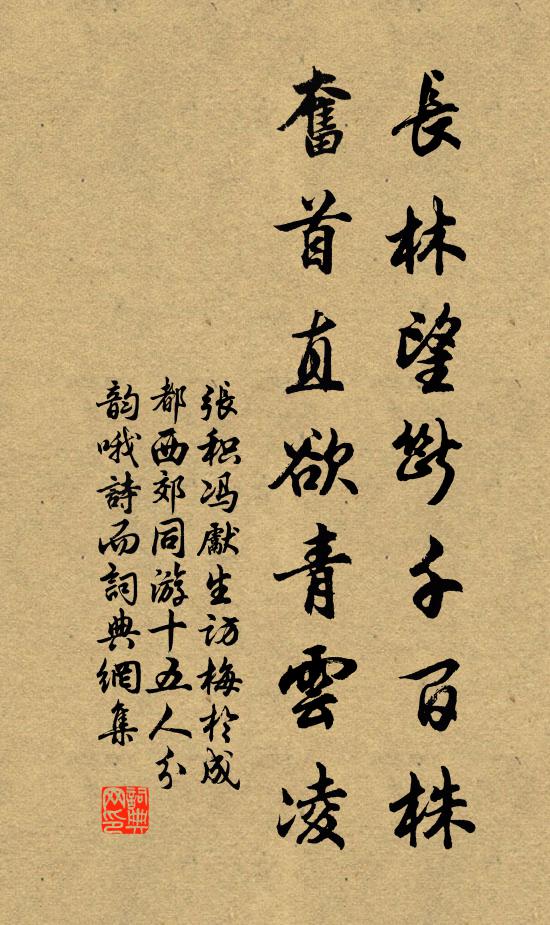 長林望斷千百株
奮首直欲青雲凌
張積馮獻生訪梅於成
都西郊同游十五人分
韵哦詩而詞典網集
詞典
网印